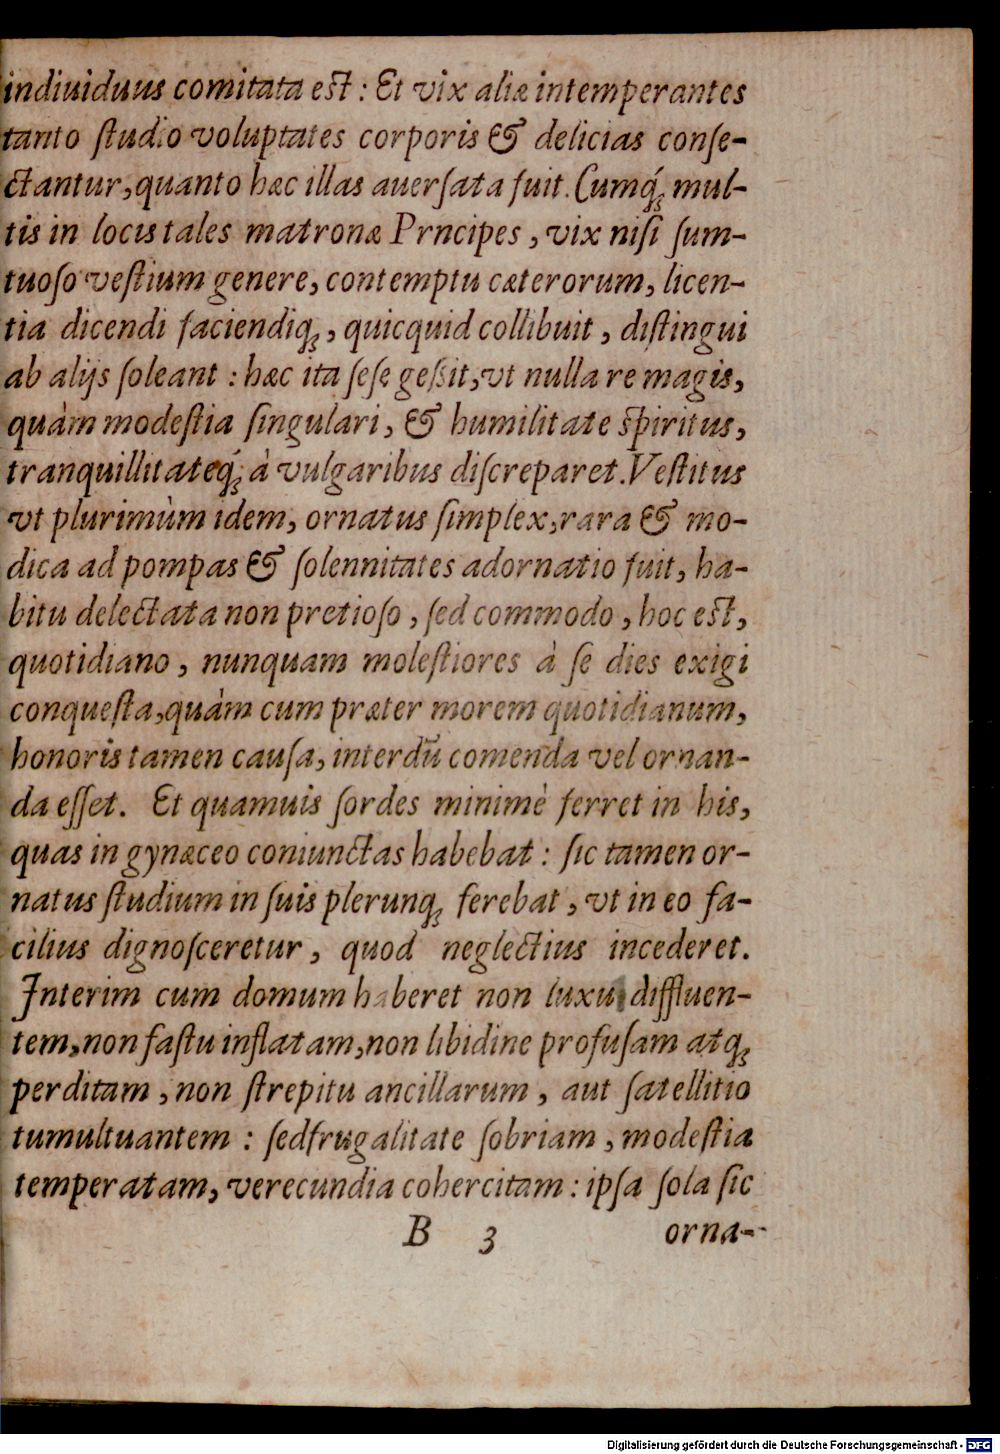 indiuiduus comitata eſt : Et vix aliæ intemperantes
tanto ſtudio voluptates corporis & delicias conſe-
ctantur, quanto hæc illas auerſata fuit. Cumq́ꝫ mul-
tis in locis tales matronæ Prncipes, vix niſi ſum-
tuoſo veſtium genere, contemptu cæterorum, licen-
tia dicendi faciendiqꝫ, quicquid collibuit, diſtingui
ab alijs ſoleant : hæc ita ſeſe geſsit, vt nulla re magis,
quàm modeſtia ſingulari, & humilitate ſpiritus,
tranquillitateq́ꝫ à vulgaribus diſcreparet. Veſtitus
vt plurimùm idem, ornatus ſimplex, rara & mo-
dica ad pompas & ſolennitates adornatio fuit, ha-
bitu delectata non pretioſo, ſed commodo, hoc eſt,
quotidiano, nunquam moleſtiores à ſe dies exigi
conqueſta, quàm cum præter morem quotidianum,
honoris tamen cauſa, interdū comenda vel ornan-
da eſſet. Et quamuis ſordes minimè ferret in his,
quas in gynæceo coniunctas habebat : ſic tamen or-
natus ſtudium in ſuis plerunqꝫ ferebat, vt in eo fa-
cilius dignoſceretur, quod neglectius incederet.
Interim cum domum haberet non luxu diffluen-
tem, non faſtu inflatam, non libidine profuſam atqꝫ
perditam, non ſtrepitu ancillarum, aut ſatellitio
tumultuantem : ſed frugalitate ſobriam, modeſtia
temperatam, verecundia cohercitam : ipſa ſola ſic
B 3 orna-
Digitalisierung gefördert durch die Deutsche Forschungsgemeinschaft - DFG